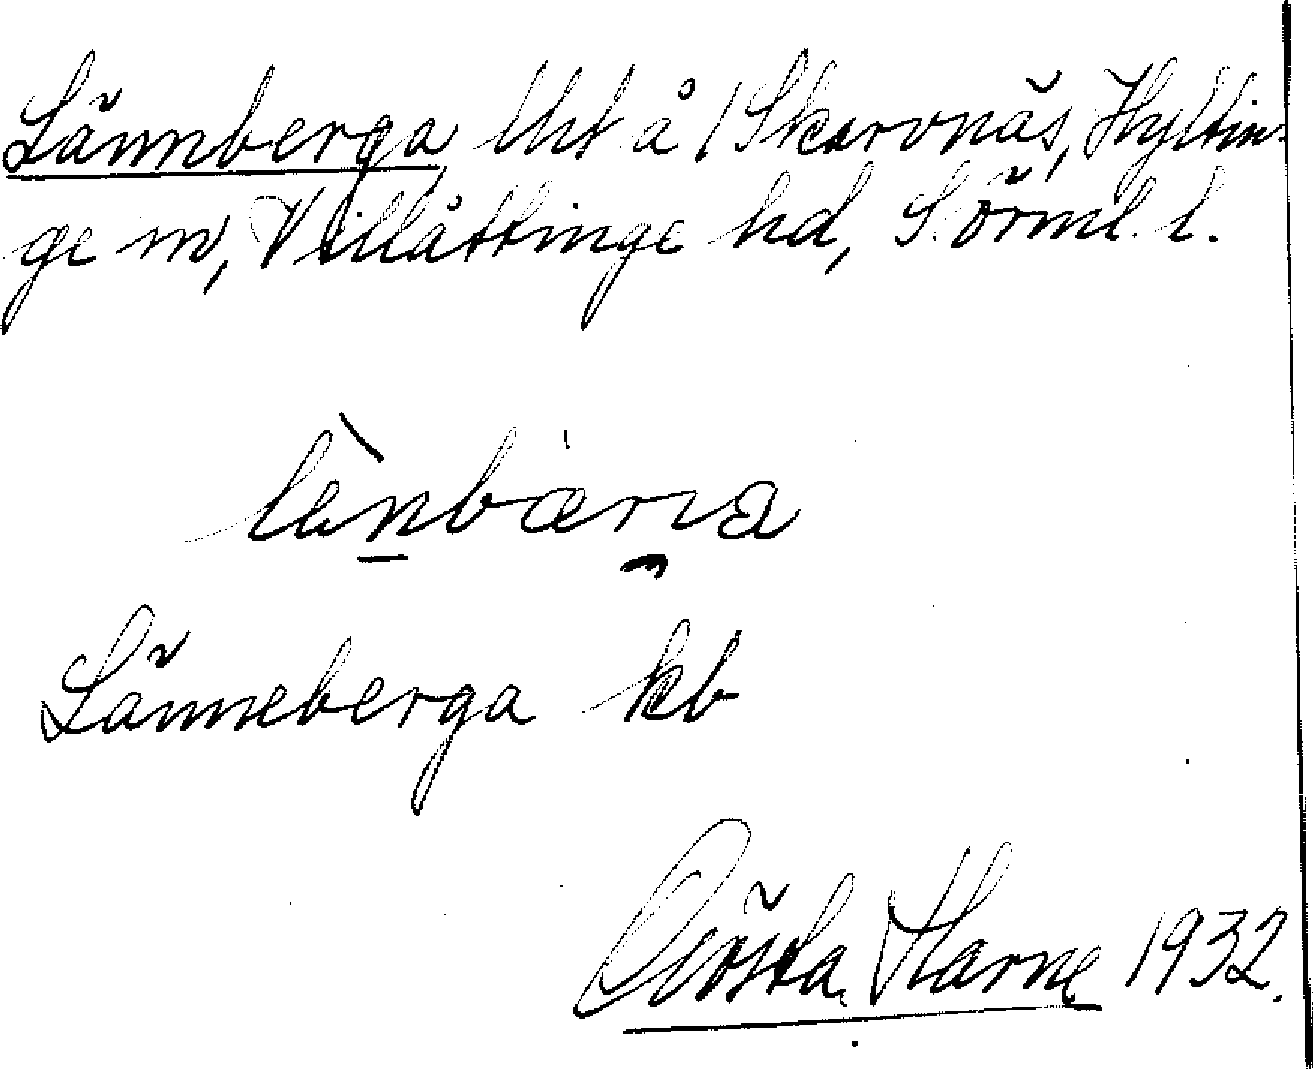 Lännberga lht å 1 Skarvnäs, Hyltin-
ge sn, Villåttinge hd, Sörml. l.
lènbærıa
Länneberga kb
Gösta Harne 1932.